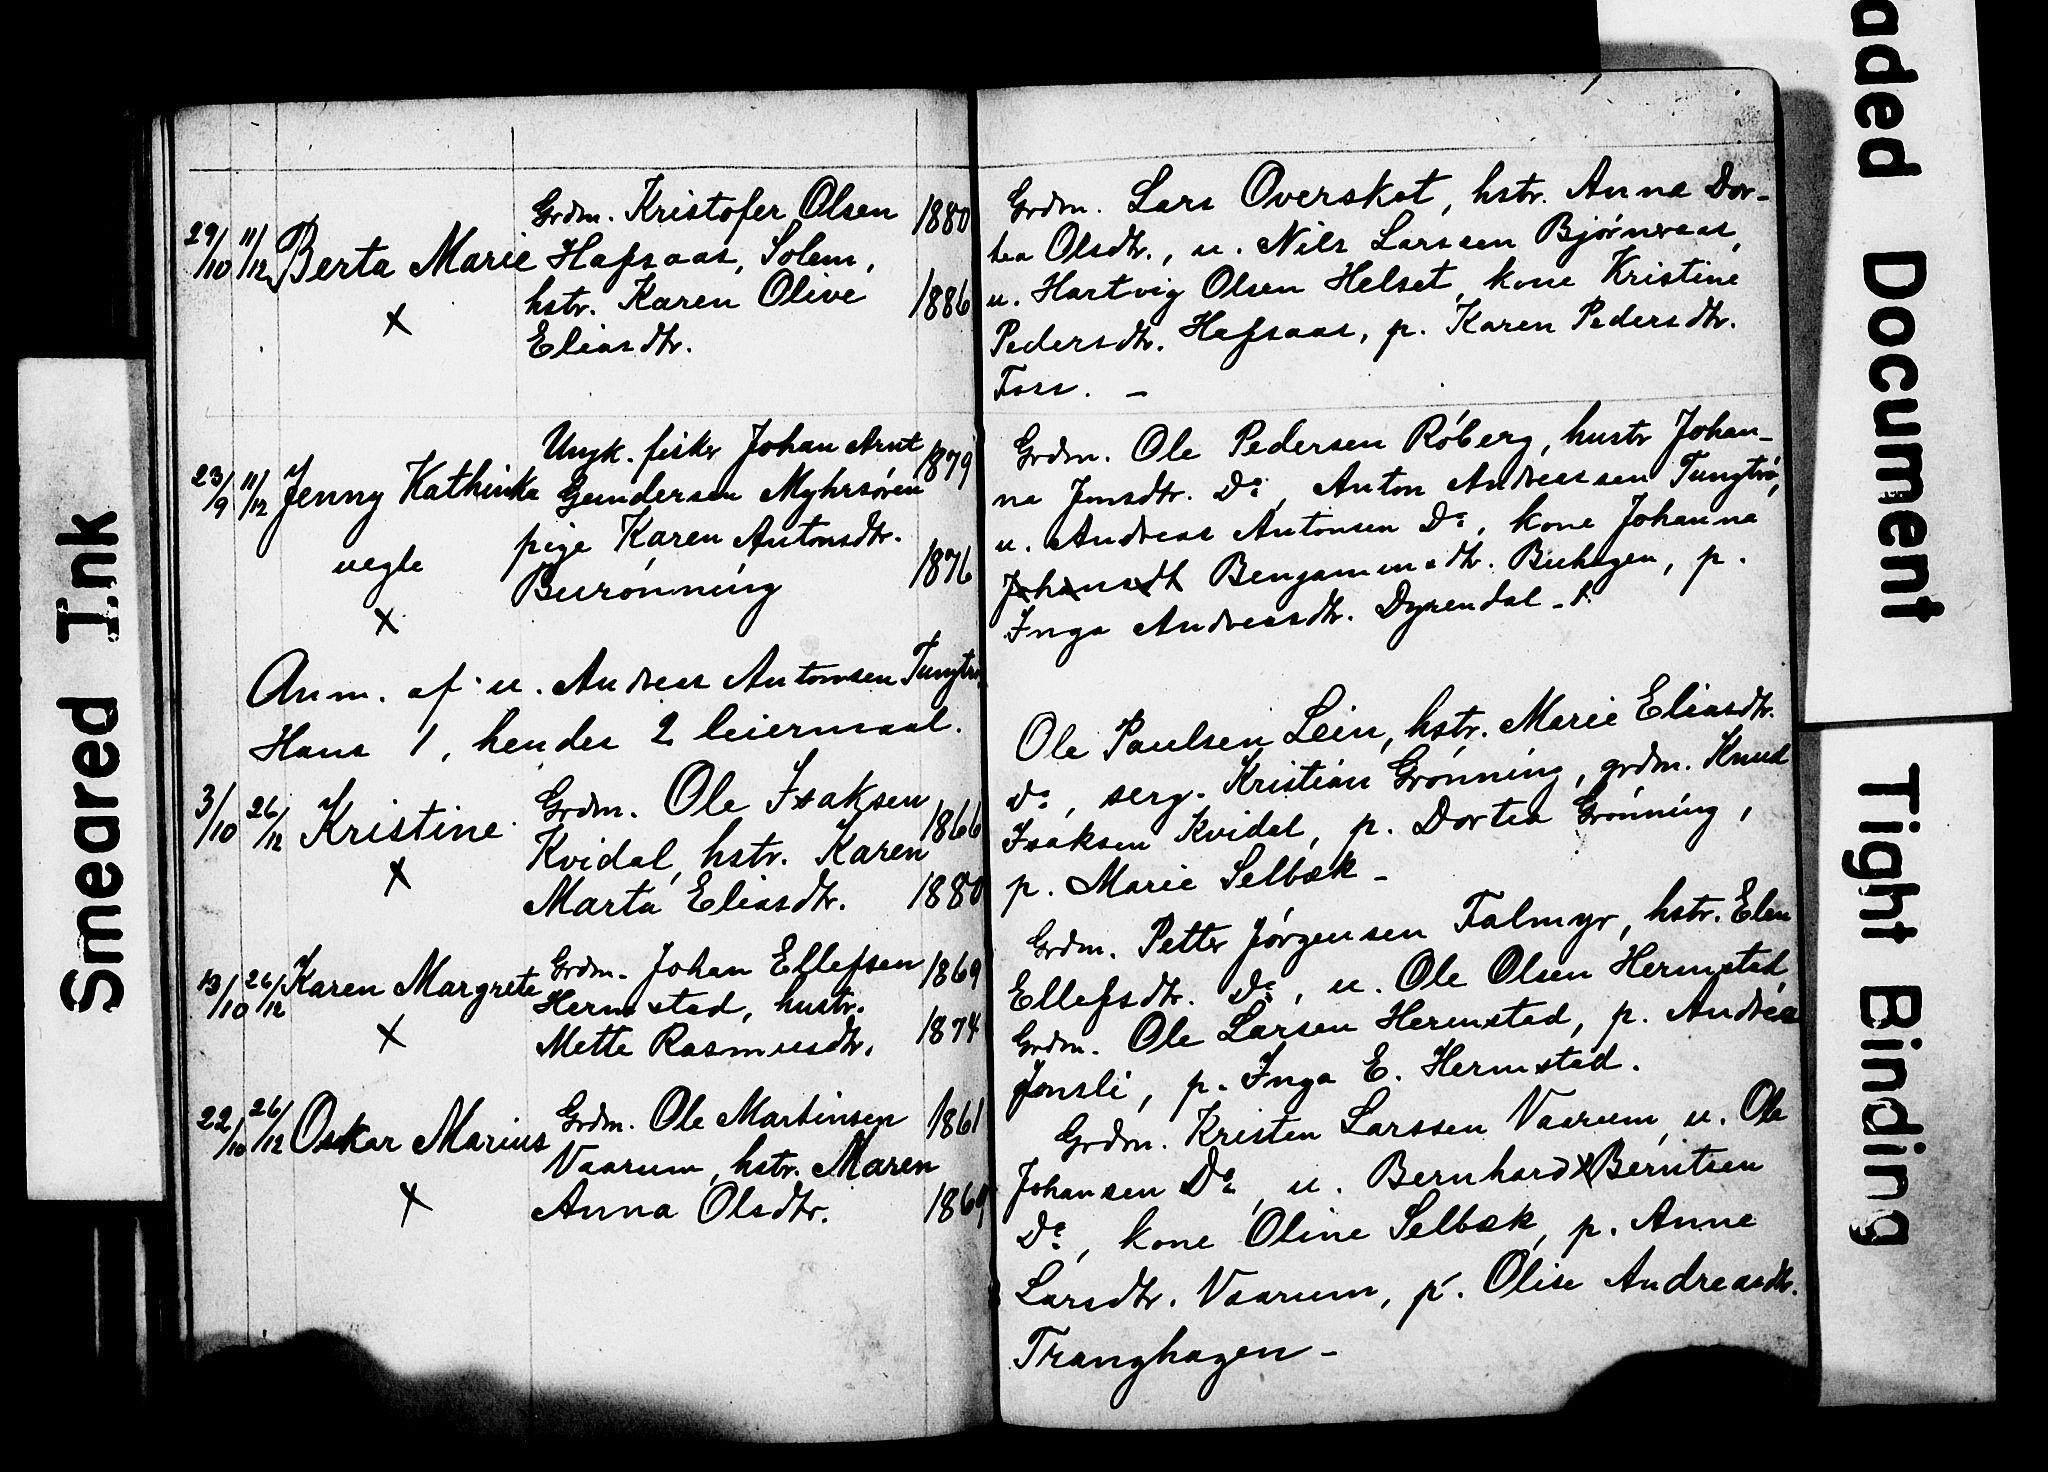 Grdm. Kristofer Olsen 1880
29/10 11/12 Berta Marie Hafsaas, Solem,
hstr. Karen Olive 1886
Eliasdtr.
x
Ungk. fisker Johan Arnt 1879
23/9 11/12 Jenny Kathinka Gundersen Myhrsøren
pige Karen Antonsdtr.
uegte Burønning 1876
x
Anm. af u. Andreas Antonsen Tungtrø
Hans 1, hendes 2 leiermaal.
3/10 26/12 Kristine Grdm. Ole Isaksen 1866
Kvidal, hstr. Karen
x Marta Eliasdtr. 1880
13/10 26/12 Karen Margrete Grdm. Johan Ellefsen 1869
Hermstad, hustr.
x Mette Rasmusdtr. 1874
22/10 26/12 Oskar Marius Grdm. Ole Martinsen 1861
Vaarum, hstr. Maren
x Anna Olsdtr. 1869
Grdm. Lars Overskot, hstr. Anna Dor-
tea Olsdtr., u. Nils Larssen Bjørnraas,
u. Hartvig Olsen Helset, kone Kristine
Pedersdtr. Hafsaas, p. Karen Pedersdtr.
Foss. -
Grdm. Ole Pedersen Røberg, hustr Johan-
na Jonsdtr. Do, Anton Andreassen Tungtrø,
u. Andreas Antonsen Do, kone Johanna
Johansdt Benjaminsdtr. Buhagen, p.
Inga Andreasdtr. Dyrendal -
Ole Paulsen Lein, hstr. Marie Eliasdtr.
do, serg. Kristian Grønning, grdm. Knud
Isaksen Kvidal, p. Dortea Grønning,
p. Marie Selbæk -
Grdm. Petter Jørgensen Falmyr, hstr. Elen
Ellefsdtr. Do, u. Ole Olsen Hermstad,
Grdm. Ole Larsen Hermstad, p. Andrea
Jonsli, p. Inga E. Hermstad.
Grdm. Kristen Larssen Vaarum, u. Ole
Johansen Do, u. Bernhard x Berntsen
Do, kone Oline Selbæk, p. Anne
Larsdtr. Vaarum, p. Olise Andreasdtr.
Tranghagen -
Smeared Ink
aded Document
Tight Binding